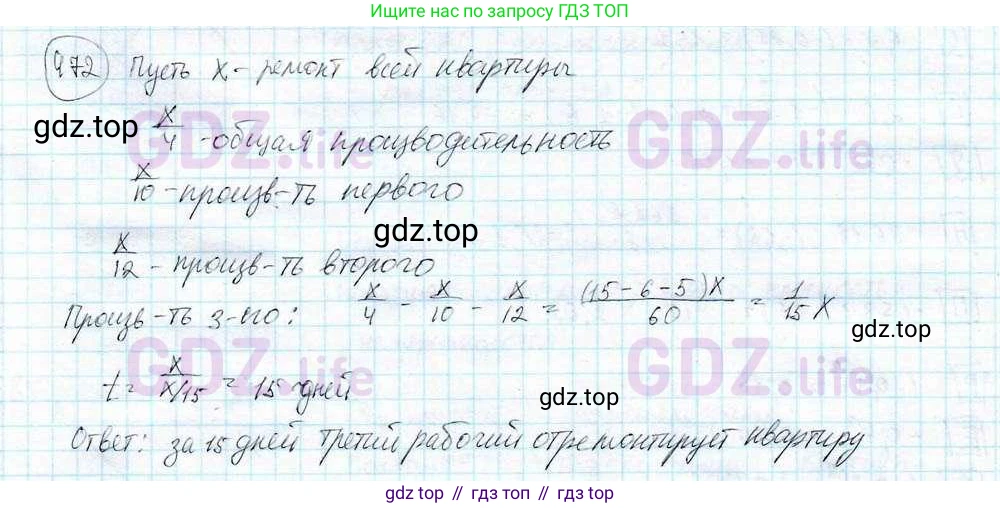 Ищите нас по запросу ГДЗ ТОП
972 Пусть x - ремонт всей квартиры
gdz.top x/4 - общая производительность
GDZ.life GDZ.life
x/10 - произв-ть первого
gdz.top
x/12 - произв-ть второго
Произв-ть 3-его: x/4 - x/10 - x/12 = (15-6-5)x/60 = 1/15 x
gdz.top
GDZ.life GDZ.life
t = x/x/15 = 15 дней
gdz.top
Ответ: за 15 дней третий рабочий отремонтирует квартиру
gdz top // гдз топ // gdz top